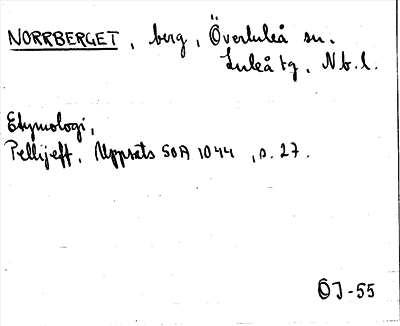 NORRBERGET, berg, Överluleå sn.
Luleå tg, Nb.l.
Etymologi,
Pellijeff, Uppsats SOA 1044, s. 27.
ÖJ-55